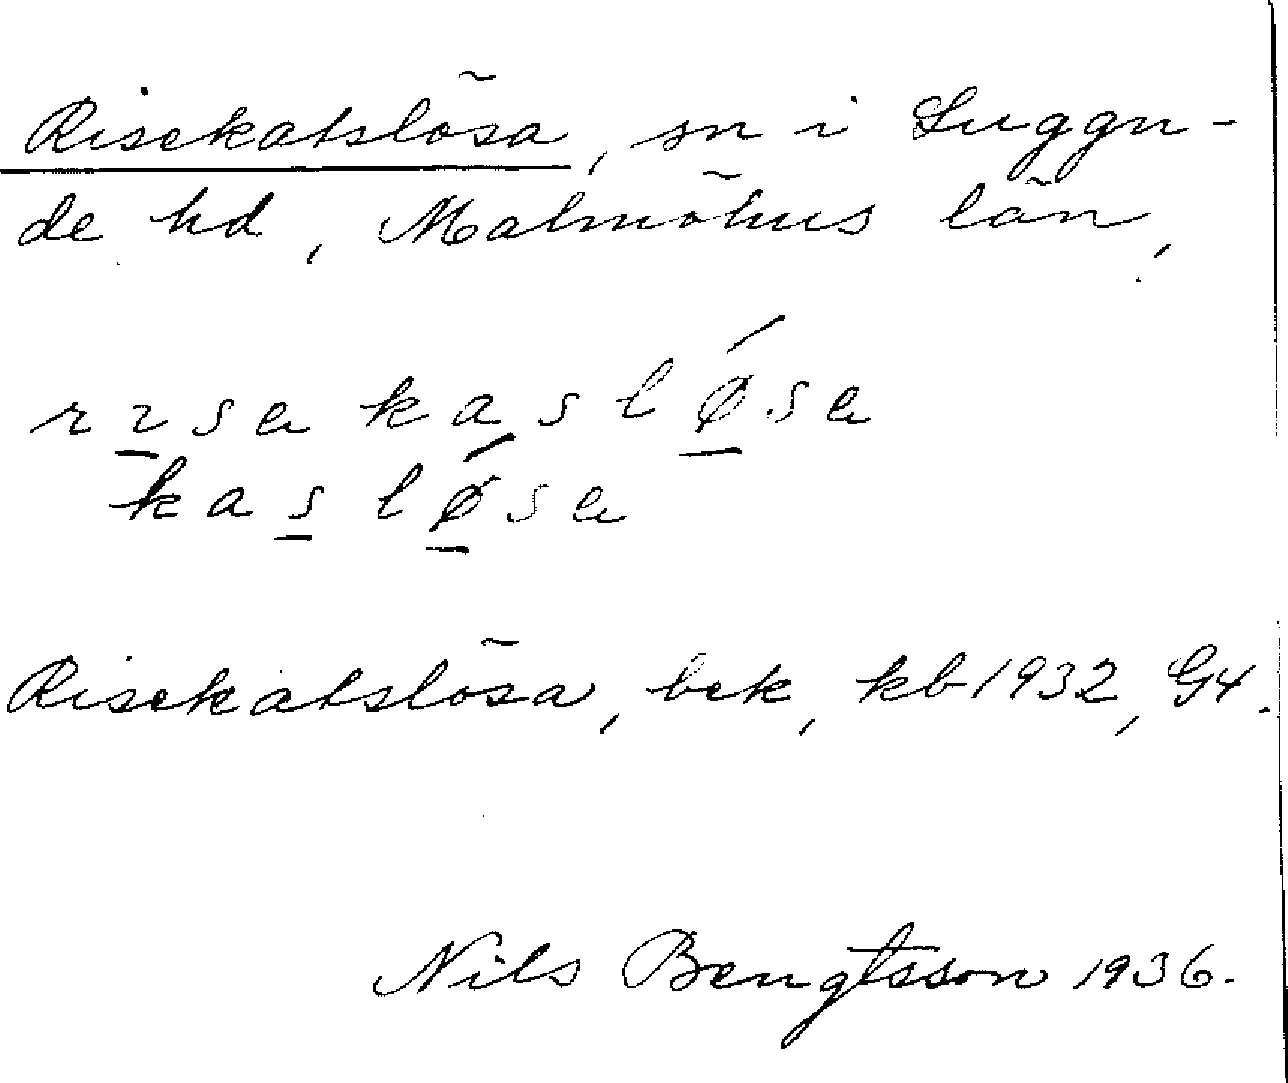 Risekatslösa, sn i Luggu-
de hd, Malmöhus län,
rısa kaslǿsa
kaslǿsa
Risekatslösa, bek, kb 1932, G4.
Nils Bengtsson 1936.